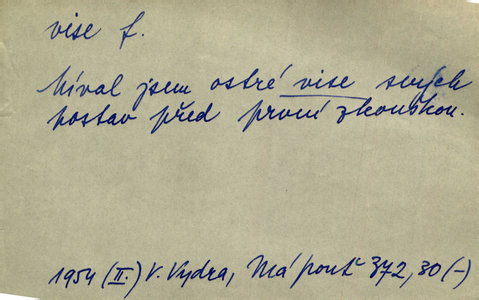 vise f.
Míval jsem ostré vise svých
postav před první zkouškou.
1954 (II.) V. Vydra, Má pouť 372, 30 (-)